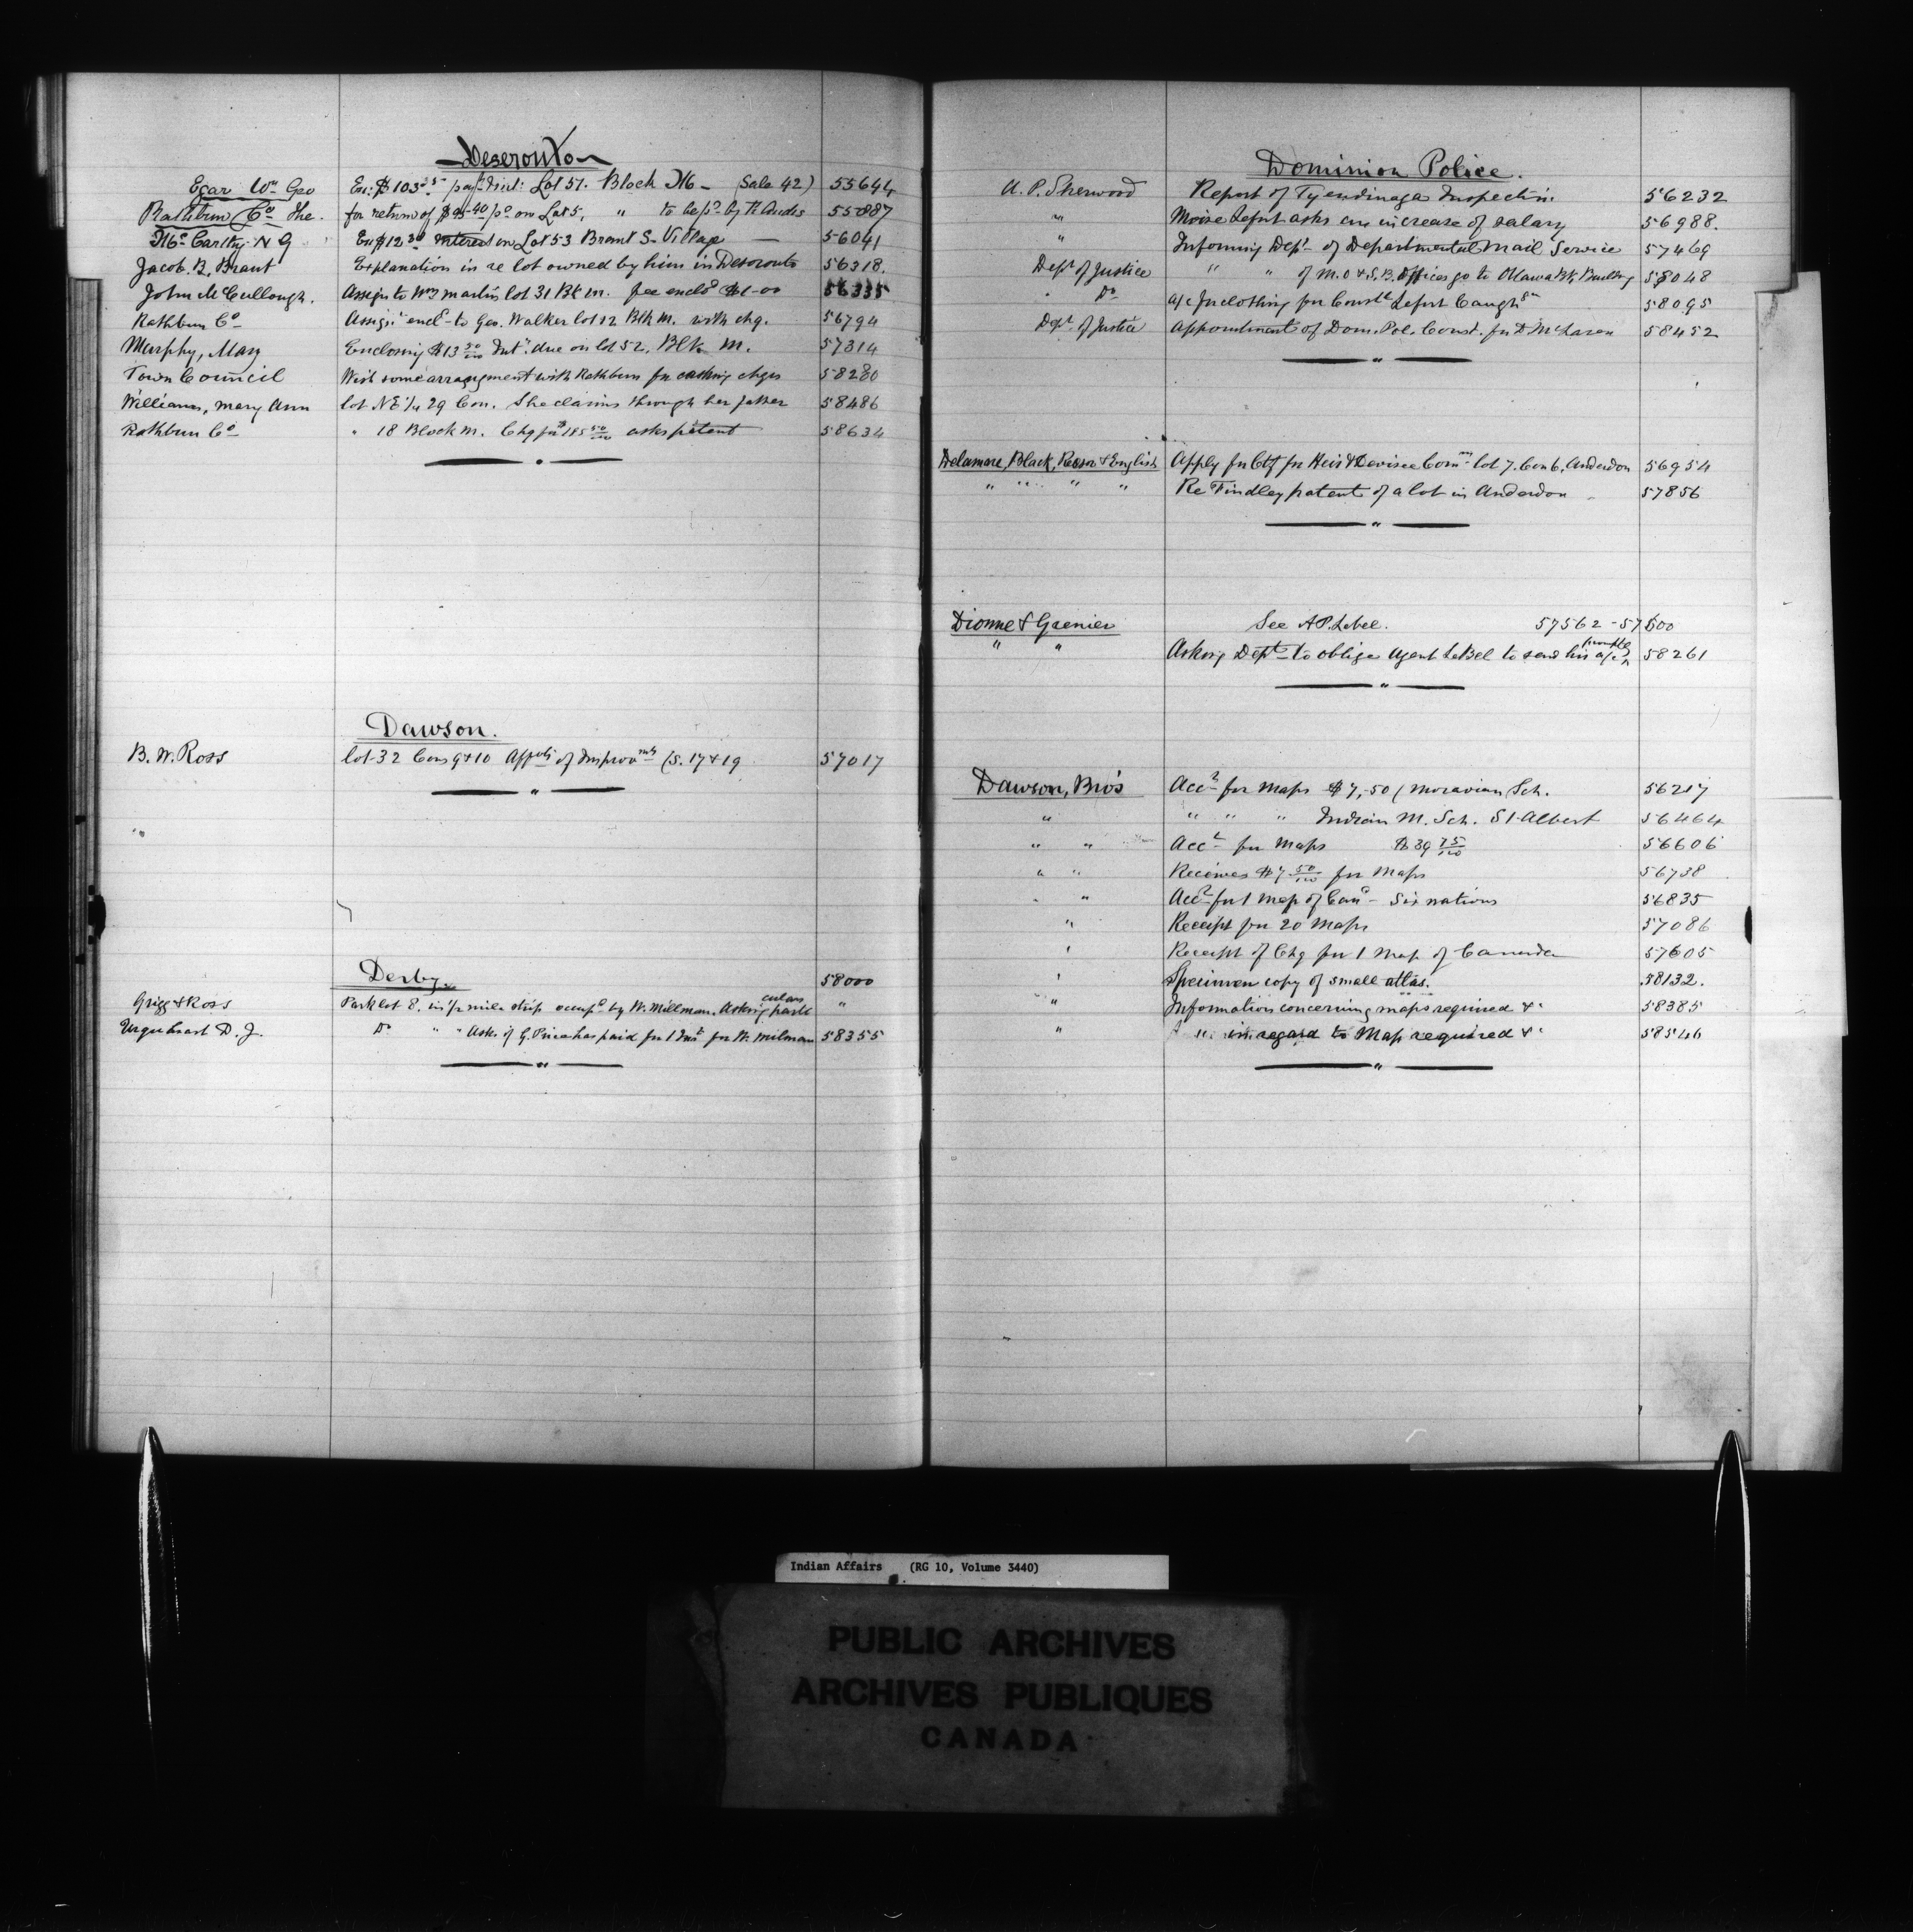 Deseronto
Egar Wm Geo En: $103.25 pay't &c int: Lot 51. Block M - (Sale 42) 55644
Rathbun Co The. for return of $25-40 pd on Lot 5, " to be pd by R. 55887
Mc Carthy N G En $12.30 interest on Lot 53 Brant S. Village — 56041
Jacob. B. Brant Explanation in re lot owned by him in Deseronto 56318.
John McCullough. Assign to Wm Martin lot 31 Bk M. fee enclod $1-00 56335
Rathbun Co Assignt encld to Geo. Walker lot 12 Blk M. with chq. 56794
Murphy, Mary Enclosing $13 50/100 Int. due on lot 52, Blk M. 57314
Town Council Wish some arrangement with Rathbun for cashing chqs 58280
Williams, Mary Ann lot NE 1/4 29 Con. She claims through her father 58486
Rathbun Co " 18 Block M. Chq for $185 50/100 asks patent 58634
Dawson.
B. W. Ross lot 32 Cons 9 & 10 Appts of Improvmts (S. 17 & 19 57017
Derby. 58000
Grigg & Ross Park lot 8, in 1/2 mile strip occupd by W. Millman. Asking particulars "
Urquhart D. J. Do " " Ask. if G. Price has paid for 1 Inst for W. Milman 58355
Dominion Police.
A. P. Sherwood Report of Tyendinaga Inspection 56232
" Moise Lefort asks an increase of salary 56988.
" Informing Dept of Departmental Mail Service 57469
Dept of Justice " " of M.O & S.B. Offices go to Ottawa Bk Building 58048
" Do a/c for clothing for Constle Lefort Caughn 58095
Dept of Justice Appointment of Dom. Pol. Const. for D McLaren 58452
Delamere, Black, Reesor & English Apply for Ctf for Heir & Devisee Comn lot 7. Con 6, Anderdon 56954
" " " " Re Findley patent of a lot in Anderdon 57856
Dionne & Grenier See A. P. Lebel. 57562 - 57600
" " Asking Dept to oblige Agent LeBel to send his a/c 58261
Dawson, Bro's Acct for Maps $7,-50 (Moravian Sch. 56217
" " " " Indian M. Sch. St Albert 56464
" " Acct for Maps $39 75/100 56606
" " Receives $7 50/100 for Maps 56738
" " Acct for 1 Map of Can - Six nations 56835
" Receipt for 20 Maps 57086
" Receipt of Chq for 1 Map of Canada 57605
" Specimen copy of small atlas. 58132.
" Information concerning maps required &c 58385
" " in regard to Map required &c 58546
Indian Affairs (RG 10, Volume 3440)
PUBLIC ARCHIVES
ARCHIVES PUBLIQUES
CANADA